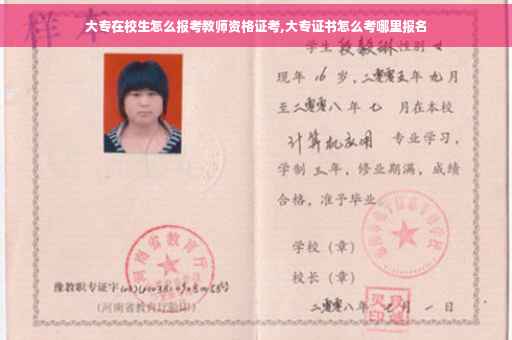 大专在校生怎么报考教师资格证考,大专证书怎么考哪里报名
样本
学生 性别 女
现年 16 岁,二零零五年 九月
至二零零八年 七 月在本校
计算机应用 专业学习,
学制 三 年,修业期满,成绩
合格,准予毕业
学校(章)
校长(章)
二零零八年 七 月 一 日
河南省教育厅
豫教职专证字
(河南省教育厅验印)